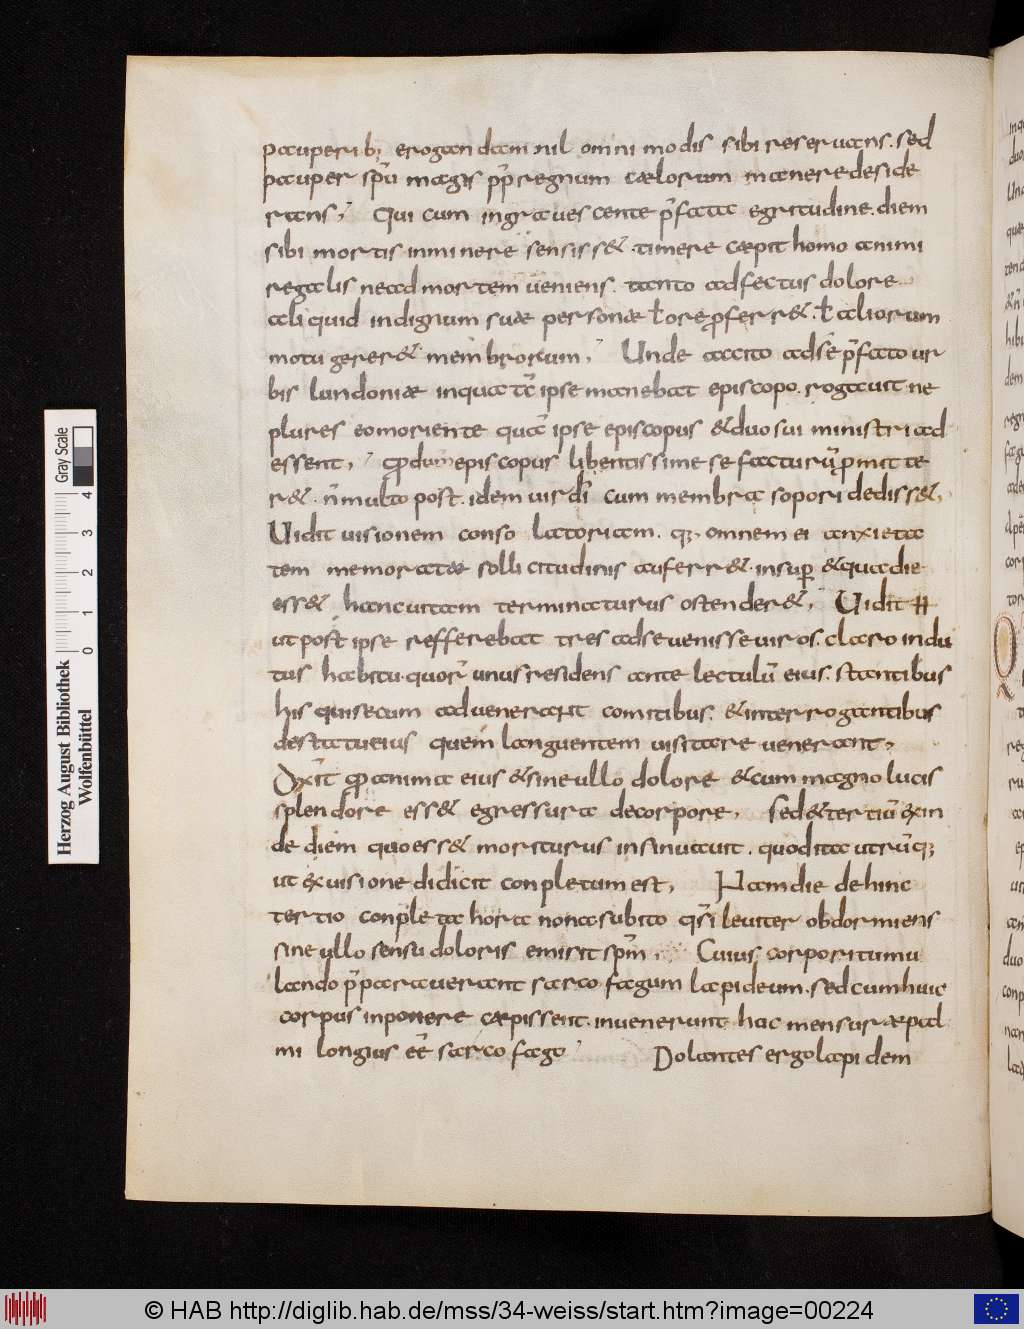 pauperib; erogandam nil omnimodis sibi reseruans. sed
pauper spū magis ꝓp regnum cælorum manere deside
rans; Qui cum ingrauescente p̄fata egritudine. diem
sibi mortis inminere sensisset. timere cæpit homo animi
regalis ne ad mortem ueniens. tanto adfectus dolore
aliquid indignum suæ personæ ł ore ꝓferret. ł aliorum
motu gereret membrorum; Unde accito ad se p̄fato ur
bis lundoniæ in qua tc̄ ipse manebat episcopo. rogauit ne
plures eo moriente quā ipse episcopus & duo sui ministri ad
essent; Qd dum episcopus libentissime se facturū ꝓmitte
r&. n̄ multo post. idem uir dī cum membra sopori dediss&,
Uidit uisionem consolatoriam. q; omnem ei anxieta
tem memoratæ sollicitudinis auferr&. insuꝑ & qua die
ess& hanc uitam terminaturus ostender&; Uidit
ut post ipse refferebat tres ad se uenisse uiros. claro indu
tus habitu. quoꝝ unus residens ante lectulū eius. stantibus
his qui secum aduenerant comitibus. & interrogantibus
de statu eius quem languentem uisitare uenerant,
Dixit qd anima eius & sine ullo dolore & cum magno lucis
splendore ess& egressura de corpore, Sed & tertiū exin
de diem quo ess& moriturus insinuauit. quod ita utrūq;
ut ex uisione didicit conpletum est, Nam die dehinc
tertio conpleta hora nona subito qs̄i leuiter obdormiens
sine ullo sensu doloris emisit spm̄, Cuius corpori tumu
lando p̄parauerant sarcofagum lapideum. sed cum huic
corpus inponere cæpissent. inuenerunt hac mensuræ pal
mi longius eē sarcofago Dolantes ergo lapidem
Herzog August Bibliothek
Wolfenbüttel
Gray Scale
0 1 2 3 4
© HAB http://diglib.hab.de/mss/34-weiss/start.htm?image=00224